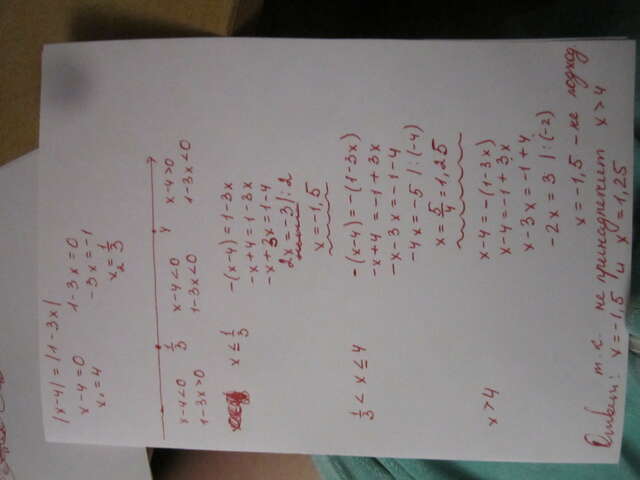 |x-4| = |1-3x|
x-4=0 1-3x=0
x₁=4 -3x=-1
x₂=1/3
1/3 4
x-4<0 x-4<0 x-4>0
1-3x>0 1-3x<0 1-3x<0
x ≤ 1/3 -(x-4) = 1-3x
-x+4 = 1-3x
-x+3x = 1-4
2x = -3 |:2
x = -1,5
1/3 < x ≤ 4 -(x-4) = -(1-3x)
-x+4 = -1+3x
-x-3x = -1-4
-4x = -5 |:(-4)
x = 5/4 = 1,25
x > 4 x-4 = -(1-3x)
x-4 = -1+3x
x-3x = -1+4
-2x = 3 |:(-2)
x = -1,5 – не подход.
т.к. не принадлежит x>4
Ответ: x=-1,5 и x=1,25